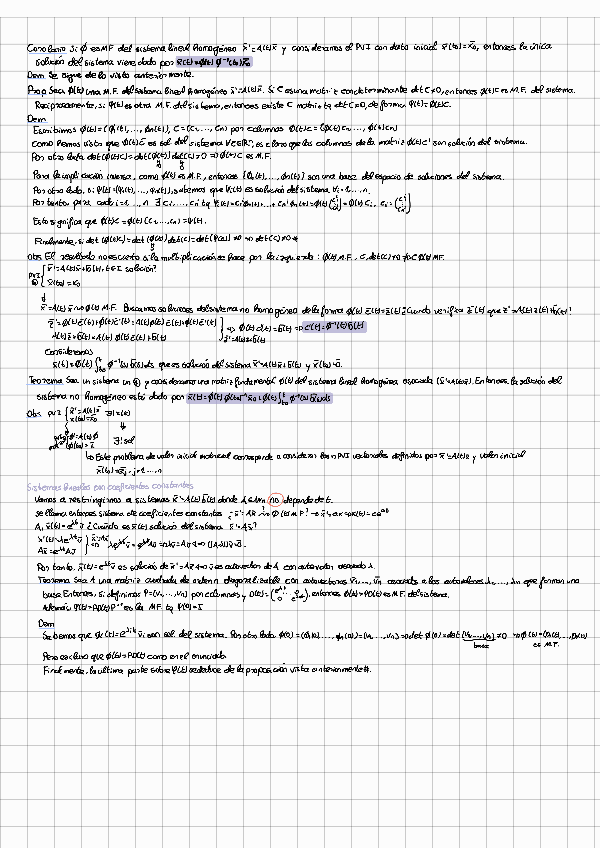 Corolario Si ϕ es M.F. del sistema lineal homogéneo x̄'=A(t)x̄ y consideramos el PVI con dato inicial x̄(t₀)=x̄₀, entonces la única
solución del sistema viene dada por x̄(t)=ϕ(t) ϕ⁻¹(t₀)x̄₀
Dem Se sigue de lo visto anteriormente.
Prop Sea ϕ(t) una M.F. del sistema lineal homogéneo x̄'=A(t)x̄. Si C es una matriz con determinante det C≠0, entonces ϕ(t)C es M.F. del sistema.
Recíprocamente, si ψ(t) es otra M.F. del sistema, entonces existe C matriz tq det C≠0, de forma ψ(t)=ϕ(t)C.
Dem
Escribimos ϕ(t)=(ϕ₁(t),...,ϕn(t)), C=(c₁,...,cn) por columnas ϕ(t)C=(ϕ(t)c₁,...,ϕ(t)cn)
Como hemos visto que ϕ(t)c̄ es sol del sistema ∀c̄∈ℝⁿ, es claro que las columnas de la matriz ϕ(t)C son solución del sistema.
Por otro lado det(ϕ(t)C)=det(ϕ(t))det(C)≠0 ⇒ ϕ(t)C es M.F.
Para la implicación inversa, como ϕ(t) es M.F., entonces {ϕ₁(t),...,ϕn(t)} son una base del espacio de soluciones del sistema.
Por otro lado, si ψ(t)=(ψ₁(t),...,ψn(t)), sabemos que ψi(t) es solución del sistema ∀i=1,...,n.
Por tanto, para cada i=1,...,n ∃ c₁ⁱ,...,cnⁱ tq ψi(t)=c₁ⁱϕ₁(t)+...+cnⁱϕn(t)=ϕ(t)(c₁ⁱ ⋮ cnⁱ)=ϕ(t)Ci, Ci=(c₁ⁱ ⋮ cnⁱ)
Esto significa que ϕ(t)C=ϕ(t)(C₁,...,Cn)=ψ(t).
Finalmente, si det(ϕ(t)C)=det(ϕ(t))det(C)=det(ψ(t))≠0 ⇒ det(C)≠0
Obs El resultado no es cierto si la multiplicación se hace por la izquierda: ϕ(t) M.F., C, det(C)≠0 ⇏ Cϕ(t) MF.
PVI { x̄'=A(t)x̄+b̄(t), t∈I solución?
x̄(t₀)=x̄₀
x̄'=A(t)x̄ ⇝ ϕ(t) M.F. Buscamos soluciones del sistema no homogéneo de la forma ϕ(t) c̄(t)=z̄(t) ¿Cuándo verifica z̄(t) que z̄'=A(t)z̄(t)+b̄(t)?
z̄'=ϕ'(t)c̄(t)+ϕ(t)c̄'(t)=A(t)ϕ(t)c̄(t)+ϕ(t)c̄'(t)
A(t)z̄+b̄(t)=A(t)ϕ(t)c̄(t)+b̄(t)
⇒ ϕ(t)c̄'(t)=b̄(t) ⇒ c̄'(t)=ϕ⁻¹(t)b̄(t)
Consideramos
x̄(t)=ϕ(t)∫ ϕ⁻¹(s)b̄(s)ds que es solución del sistema x̄'=A(t)x̄+b̄(t) y x̄(t₀)=0̄.
Teorema Sea un sistema con y consideramos una matriz fundamental ϕ(t) del sistema lineal homogéneo asociado (x̄'=A(t)x̄). Entonces, la solución del
sistema no homogéneo está dada por x̄(t)=ϕ(t)ϕ(t₀)⁻¹x̄₀+ϕ(t)∫ ϕ⁻¹(s)b̄(s)ds
Obs PVI { x̄'=A(t)x̄ ∃!x̄(t)
x̄(t₀)=x̄₀
ϕ'=A(t)ϕ
∃! sol
↳ Este problema de valor inicial matricial corresponde a considerar los n PVI vectoriales definidos por x̄'=A(t)x̄ y valor inicial
x̄(t₀)=ēj, j=1,...,n
Sistemas lineales con coeficientes constantes
Vamos a restringirnos a sistemas x̄'=Ax̄+b̄(t) donde A∈Mn no depende de t.
Se llaman entonces sistema de coeficientes constantes
A, x̄(t)=e^λt v̄ ¿Cuándo es x̄(t) solución del sistema x̄'=Ax̄?
Por tanto, x̄(t)=e^λt v̄ es solución de x̄'=Ax̄ ⇔ v̄ es autovector de A con autovalor asociado λ.
Teorema Sea A una matriz cuadrada de orden n diagonalizable con autovectores v̄₁,...,v̄n asociados a los autovalores λ₁,...,λn que forman una
base. Entonces, si definimos P=(v₁,...,vn) por columnas y D(t)= entonces ϕ(t)=PD(t) es M.F. del sistema.
Además ψ(t)=PD(t)P⁻¹ es la M.F. tq ψ(0)=I
Dem
Sabemos que ϕi(t)=e^λit v̄i son sol. del sistema. Por otro lado ϕ(0)=(ϕ₁(0),...,ϕn(0))=(v₁,...,vn) ⇒ det ϕ(0)=det(v₁,...,vn)≠0 ⇒ ϕ(t)=(ϕ₁(t),...,ϕn(t))
base es M.F.
Pero es claro que ϕ(t)=PD(t) como en el enunciado.
Finalmente, la última parte sobre ψ(t) se deduce de la proposición vista anteriormente.